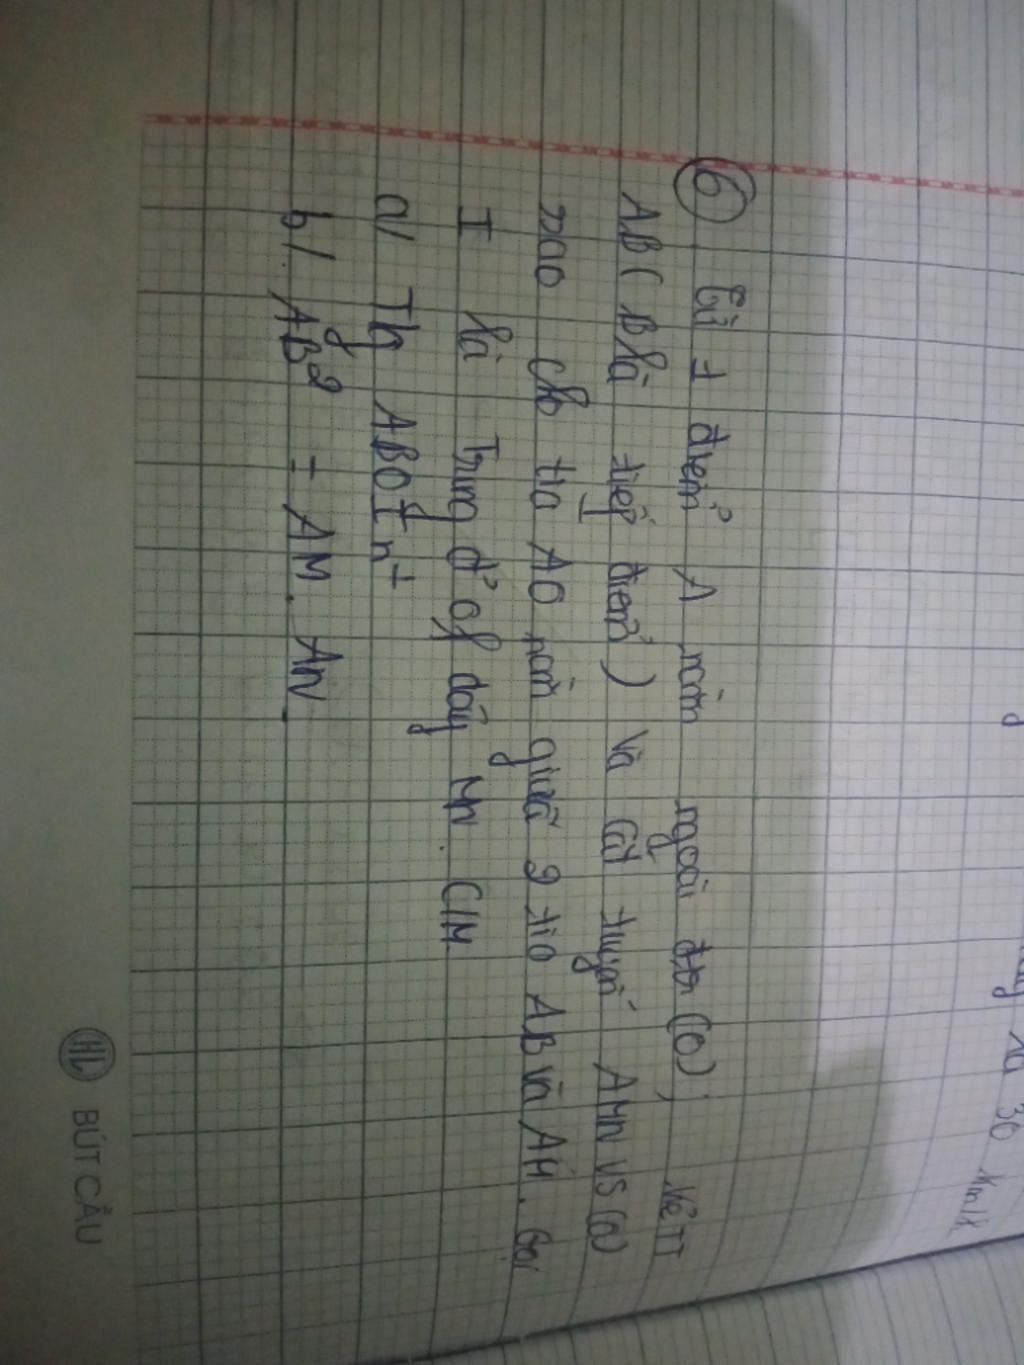 ⑥ Từ 1 điểm A nằm ngoài đtr (O), vẽ TT
AB (B là tiếp điểm) và cát tuyến AMN vs (O)
sao cho tia AO nằm giữa 2 tia AB và AM. Gọi
I là Trung đ' of dây MN. C/M
a/ Tg ABOI nt
b/. AB² = AM. AN.
HL BÚT CẦU
30